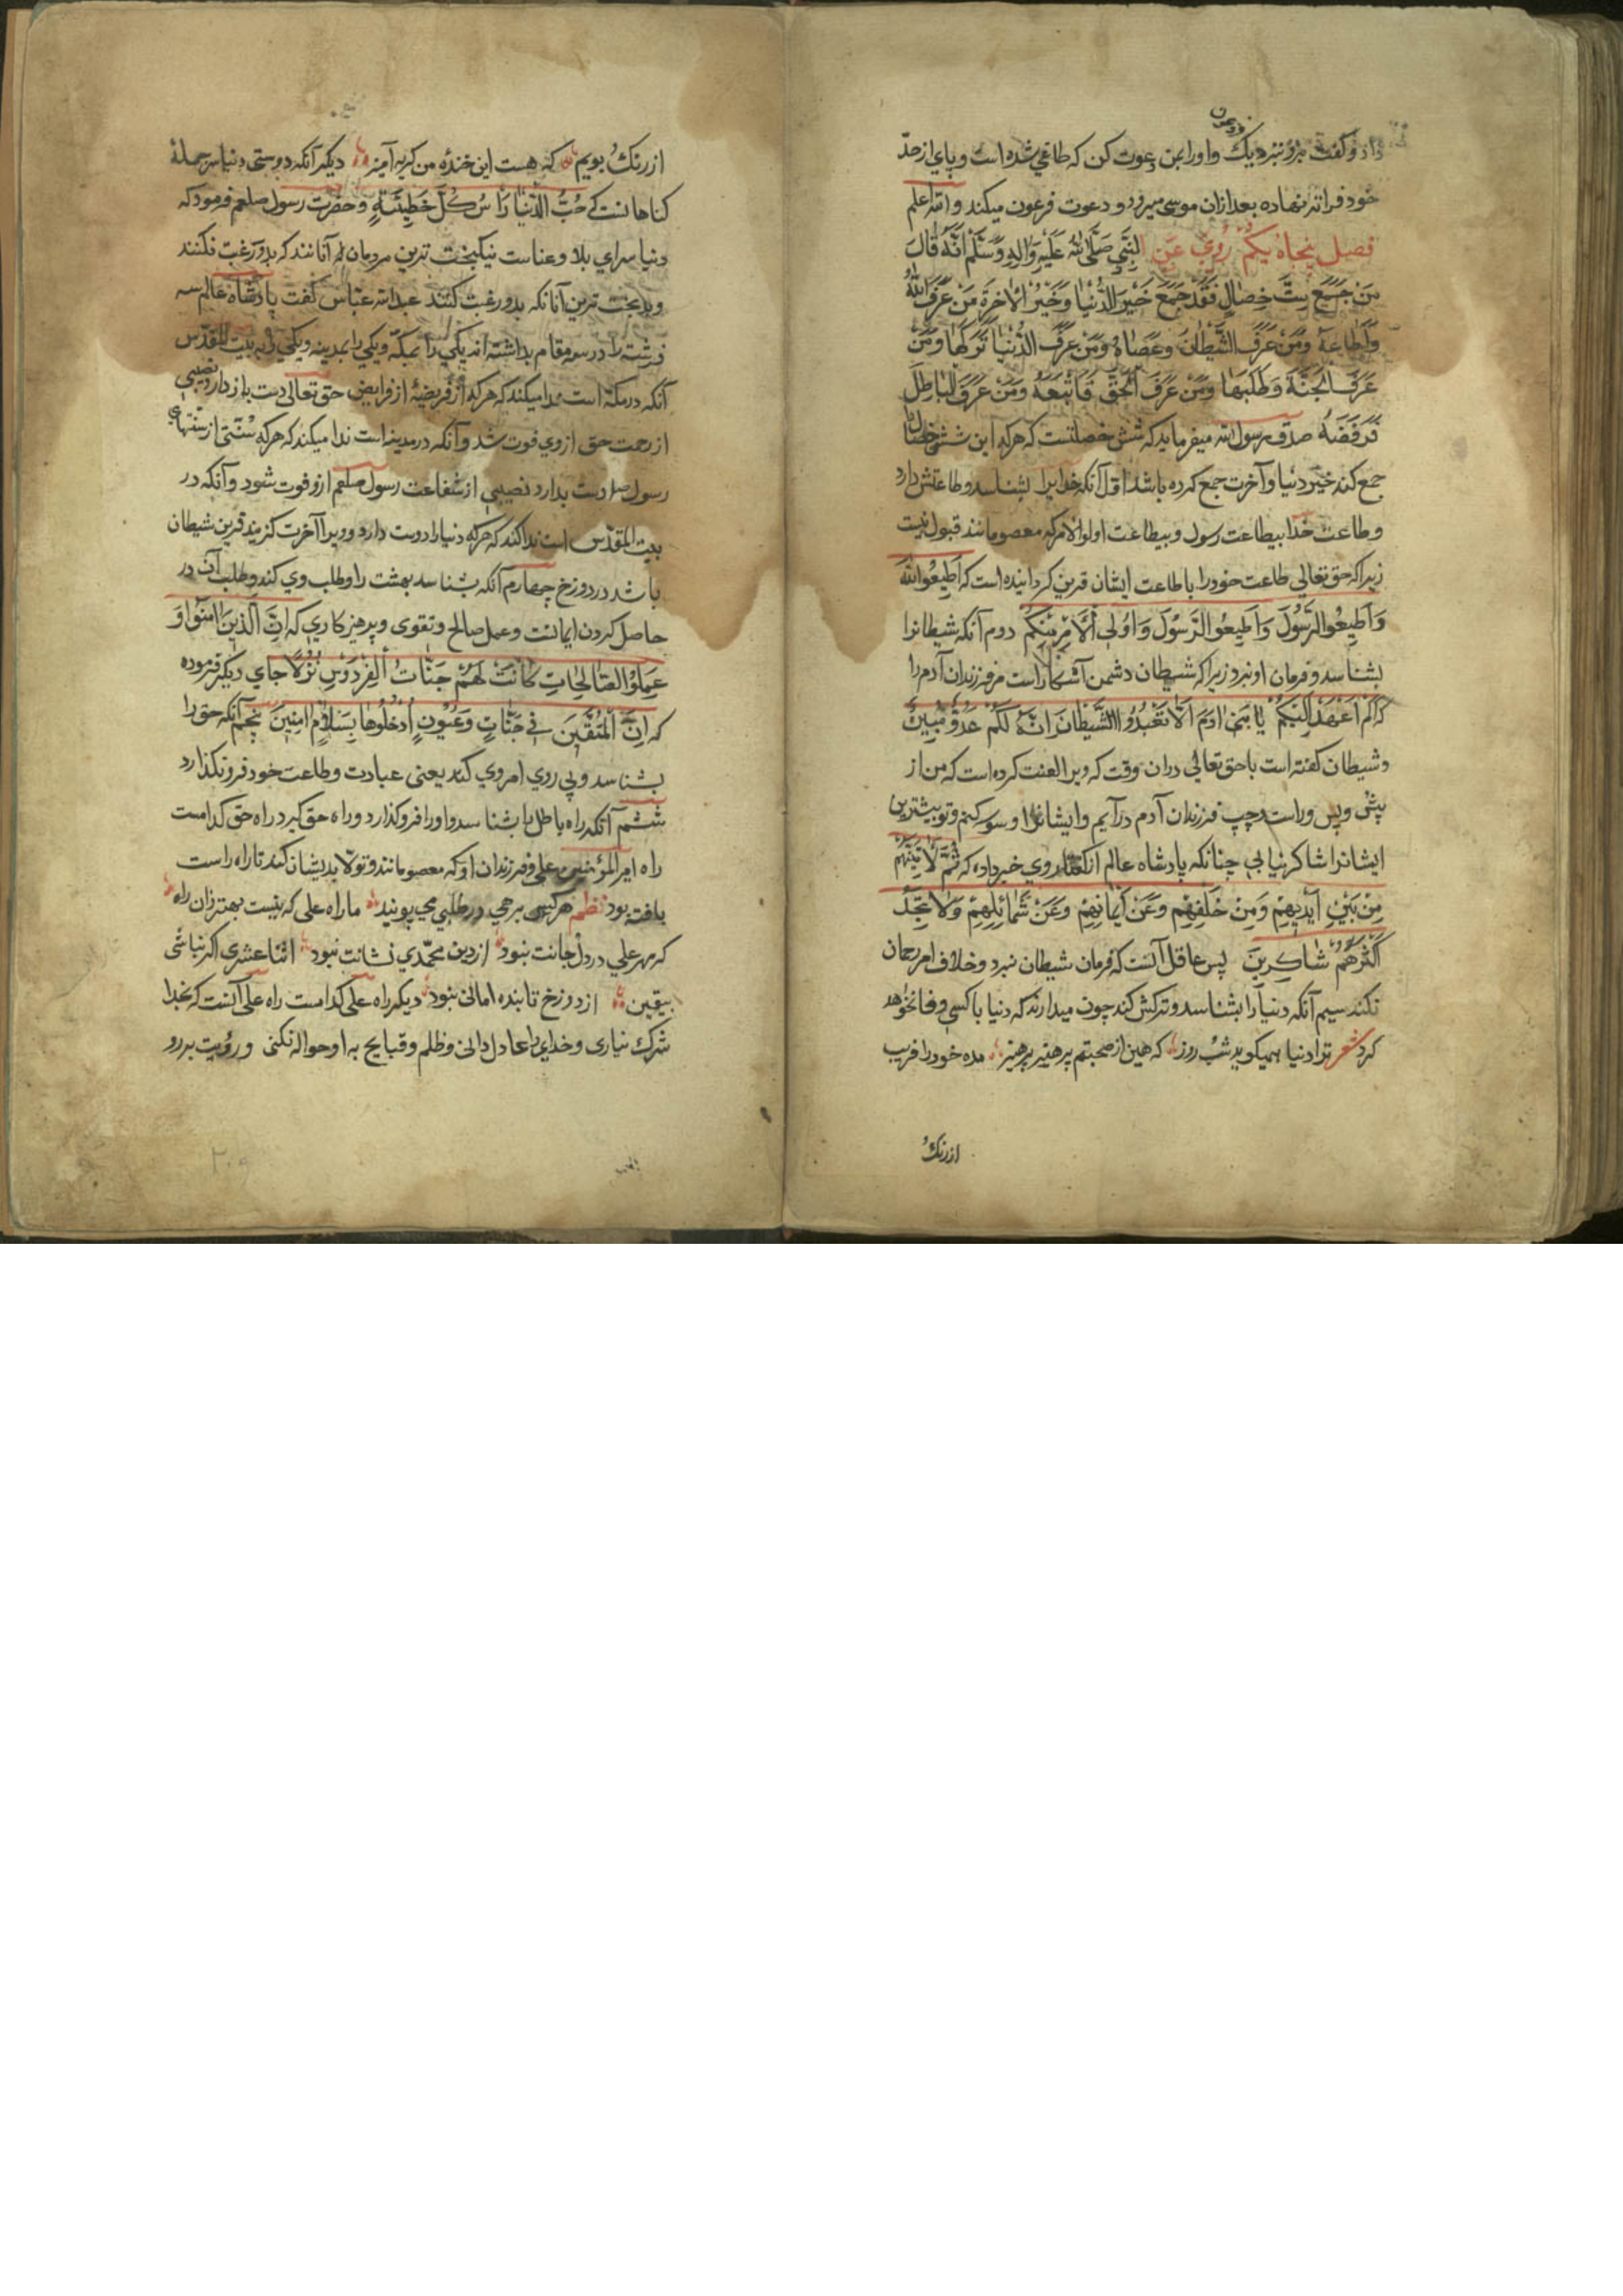 فرعون
داد و گفت برو نبزدیک و او را بمن دعوت کن که طاغی شده است و پای از حدّ
خود فراتر نهاده بعد ازان موسی میرود و دعوت فرعون میکند والله اعلم
فصل پنجاه یکم رُوِيَ عَنِ النَّبِيِّ صَلَّى اللهُ عَلَيْهِ وَآلِهِ وَسَلَّمْ اَنَّهُ قَالَ
مَنْ جَمَعَ سِتَّ خِصَالٍ فَقَدْ جَمَعَ خَيْرَ الدُّنْيَا وَخَيْرَ الْاخِرَةِ مَنْ عَرَفَ اللهَ
وَاَطَاعَهُ وَمَنْ عَرَفَ الشَّيْطَانَ وَعَصَاهُ وَمَنْ عَرَفَ الدُّنْيَا تَرَكَهَا وَمَنْ
عَرَفَ الْجَنَّةَ وَطَلَبَهَا وَمَنْ عَرَفَ الْحَقَّ فَاتَّبَعَهُ وَمَنْ عَرَفَ الْبَاطِلَ
فَرَفَضَهُ صدق رسول الله میفرماید که شش خصلتست که هرکه این شش خصال
جمع کند خیر دنیا و آخرت جمع کرده باشد اوّل آنکه خدایرا بشناسد و طاعتش دارد
و طاعت خدا بیطاعت رسول و بیطاعت اولوالامر که معصومانند قبول نیست
زیرا که حق تعالی طاعت خود را با طاعت ایشان قرین کردانیده است که اَطِيعُوا اللهَ
وَاَطِيعُوا الرَّسُوْلَ وَاَطِيعُوا الرَّسُوْلَ وَاُولِى الْاَمْرِ مِنْكُمْ دوم آنکه شیطانرا
بشناسد و فرمان او نبرد زیرا که شیطان دشمن آشکارا است مر فرزندان آدم را
که اَلَمْ اَعْهَدْ اِلَيْكُمْ يَا بَنِى اٰدَمَ اَلَّا تَعْبُدُوا الشَّيْطَانَ اِنَّهُ لَكُمْ عَدُوٌّ مُبِينٌ
و شیطان کفته است با حق تعالی دران وقت که ویرا لعنت کرده است که من از
پیش و پس و راست و چپ فرزندان آدم درآیم و ایشانرا وسوسه کنم و تو بیشترین
ایشانرا شاکر نیابی چنانکه پادشاه عالم از کفتار وی خبر داده که ثُمَّ لَاٰتِيَنَّهُمْ
مِنْ بَيْنِ اَيْدِيهِمْ وَمِنْ خَلْفِهِمْ وَعَنْ اَيْمَانِهِمْ وَعَنْ شَمَائِلِهِمْ وَلَا تَجِدُ
اَكْثَرَهُمْ شَاكِرِينَ پس عاقل آنست که فرمان شیطان نبرد و خلاف امر رحمان
نکند سیم آنکه دنیا را بشناسد و ترکش کند چون میدارند که دنیا با کسی وفا نخواهد
کرد شعر ترا دنیا همیکوید شب روز که هین از صحبتم پرهیز پرهیز مده خود را فریب
از رنک
از رنکُ بویم که هست این خندهٔ من کریه آمیز دیکر آنکه دوستی دنیا سر جملهٔ
کناهانست که حُبُّ الدُّنْيَا رَاسُ كُلِّ خَطِيْئَةٍ و حضرت رسول صلعم فرمود که
دنیا سرای بلا و عناست نیکبخت ترین مردمان آنانند که بدو رغبت نکنند
و بدبخت ترین آنانکه بدو رغبت کنند عبدالله عبّاس کفت پادشاه عالم سه
فرشته را در سه مقام بداشته اند یکی را بمکّه و یکی را بمدینه و یکی را به بیت المقدّس
آنکه در مکّه است ندا میکند که هرکه از فریضهٔ از فرایض حق تعالی دست بازدارد نصیبی
از رحمت حق از وی فوت شد و آنکه در مدینه است ندا میکند که هرکه سُنّتی از سنّتهای
رسول صلعم دست بدارد نصیبی از شفاعت رسول صلعم ازو فوت شود و آنکه در
بیت المقدّس است ندا کند که هرکه دنیا را دوست دارد و ویرا آخرت کزیند قرین شیطان
باشد در دوزخ چهارم آنکه بشناسد بهشت را و طلب وی کند و طلب آن در
حاصل کردن ایمانست و عمل صالح و تقوی و پرهیزکاری که اِنَّ الَّذِينَ اٰمَنُوا وَ
عَمِلُوا الصَّالِحَاتِ كَانَتْ لَهُمْ جَنَّاتُ الْفِرْدَوْسِ نُزُلًا جای دیکر فرموده
که اِنَّ الْمُتَّقِينَ فِي جَنَّاتٍ وَعُيُونٍ اُدْخُلُوهَا بِسَلَامٍ اٰمِنِينَ پنجم آنکه حق را
بشناسد و پی روی امر وی کند یعنی عبادت و طاعت خود فرو نکذارد
ششم آنکه راه باطل را بشناسد و او را فرو کذارد و راه حق کیرد راه حق کدامست
راه امیر المؤمنین علی و فرزندان او که معصومانند و تولّا بدیشان کند تا راه راست
یافته بود نظم هرکس برهی در طلبی می پویند ما راه علی که نیست بهتر زان راه
کر مهر علی در دل جانت نبود از دین محمّدی نشانت نبود اثنا عشری اکر نباشی
بیقین از دوزخ تابنده امانی نبود دیکر راه علی کدامست راه علی آنست که بخدا
شرک نیاری و خدای را عادل دانی و ظلم و قبایح به او حواله نکنی و رؤیت بر رو
۲۰۹